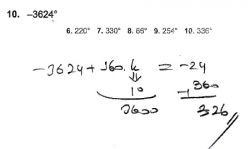 10. –3624°
6. 220° 7. 330° 8. 66° 9. 254° 10. 336°
-3624 + 360.k = -24
10 360
3600 326